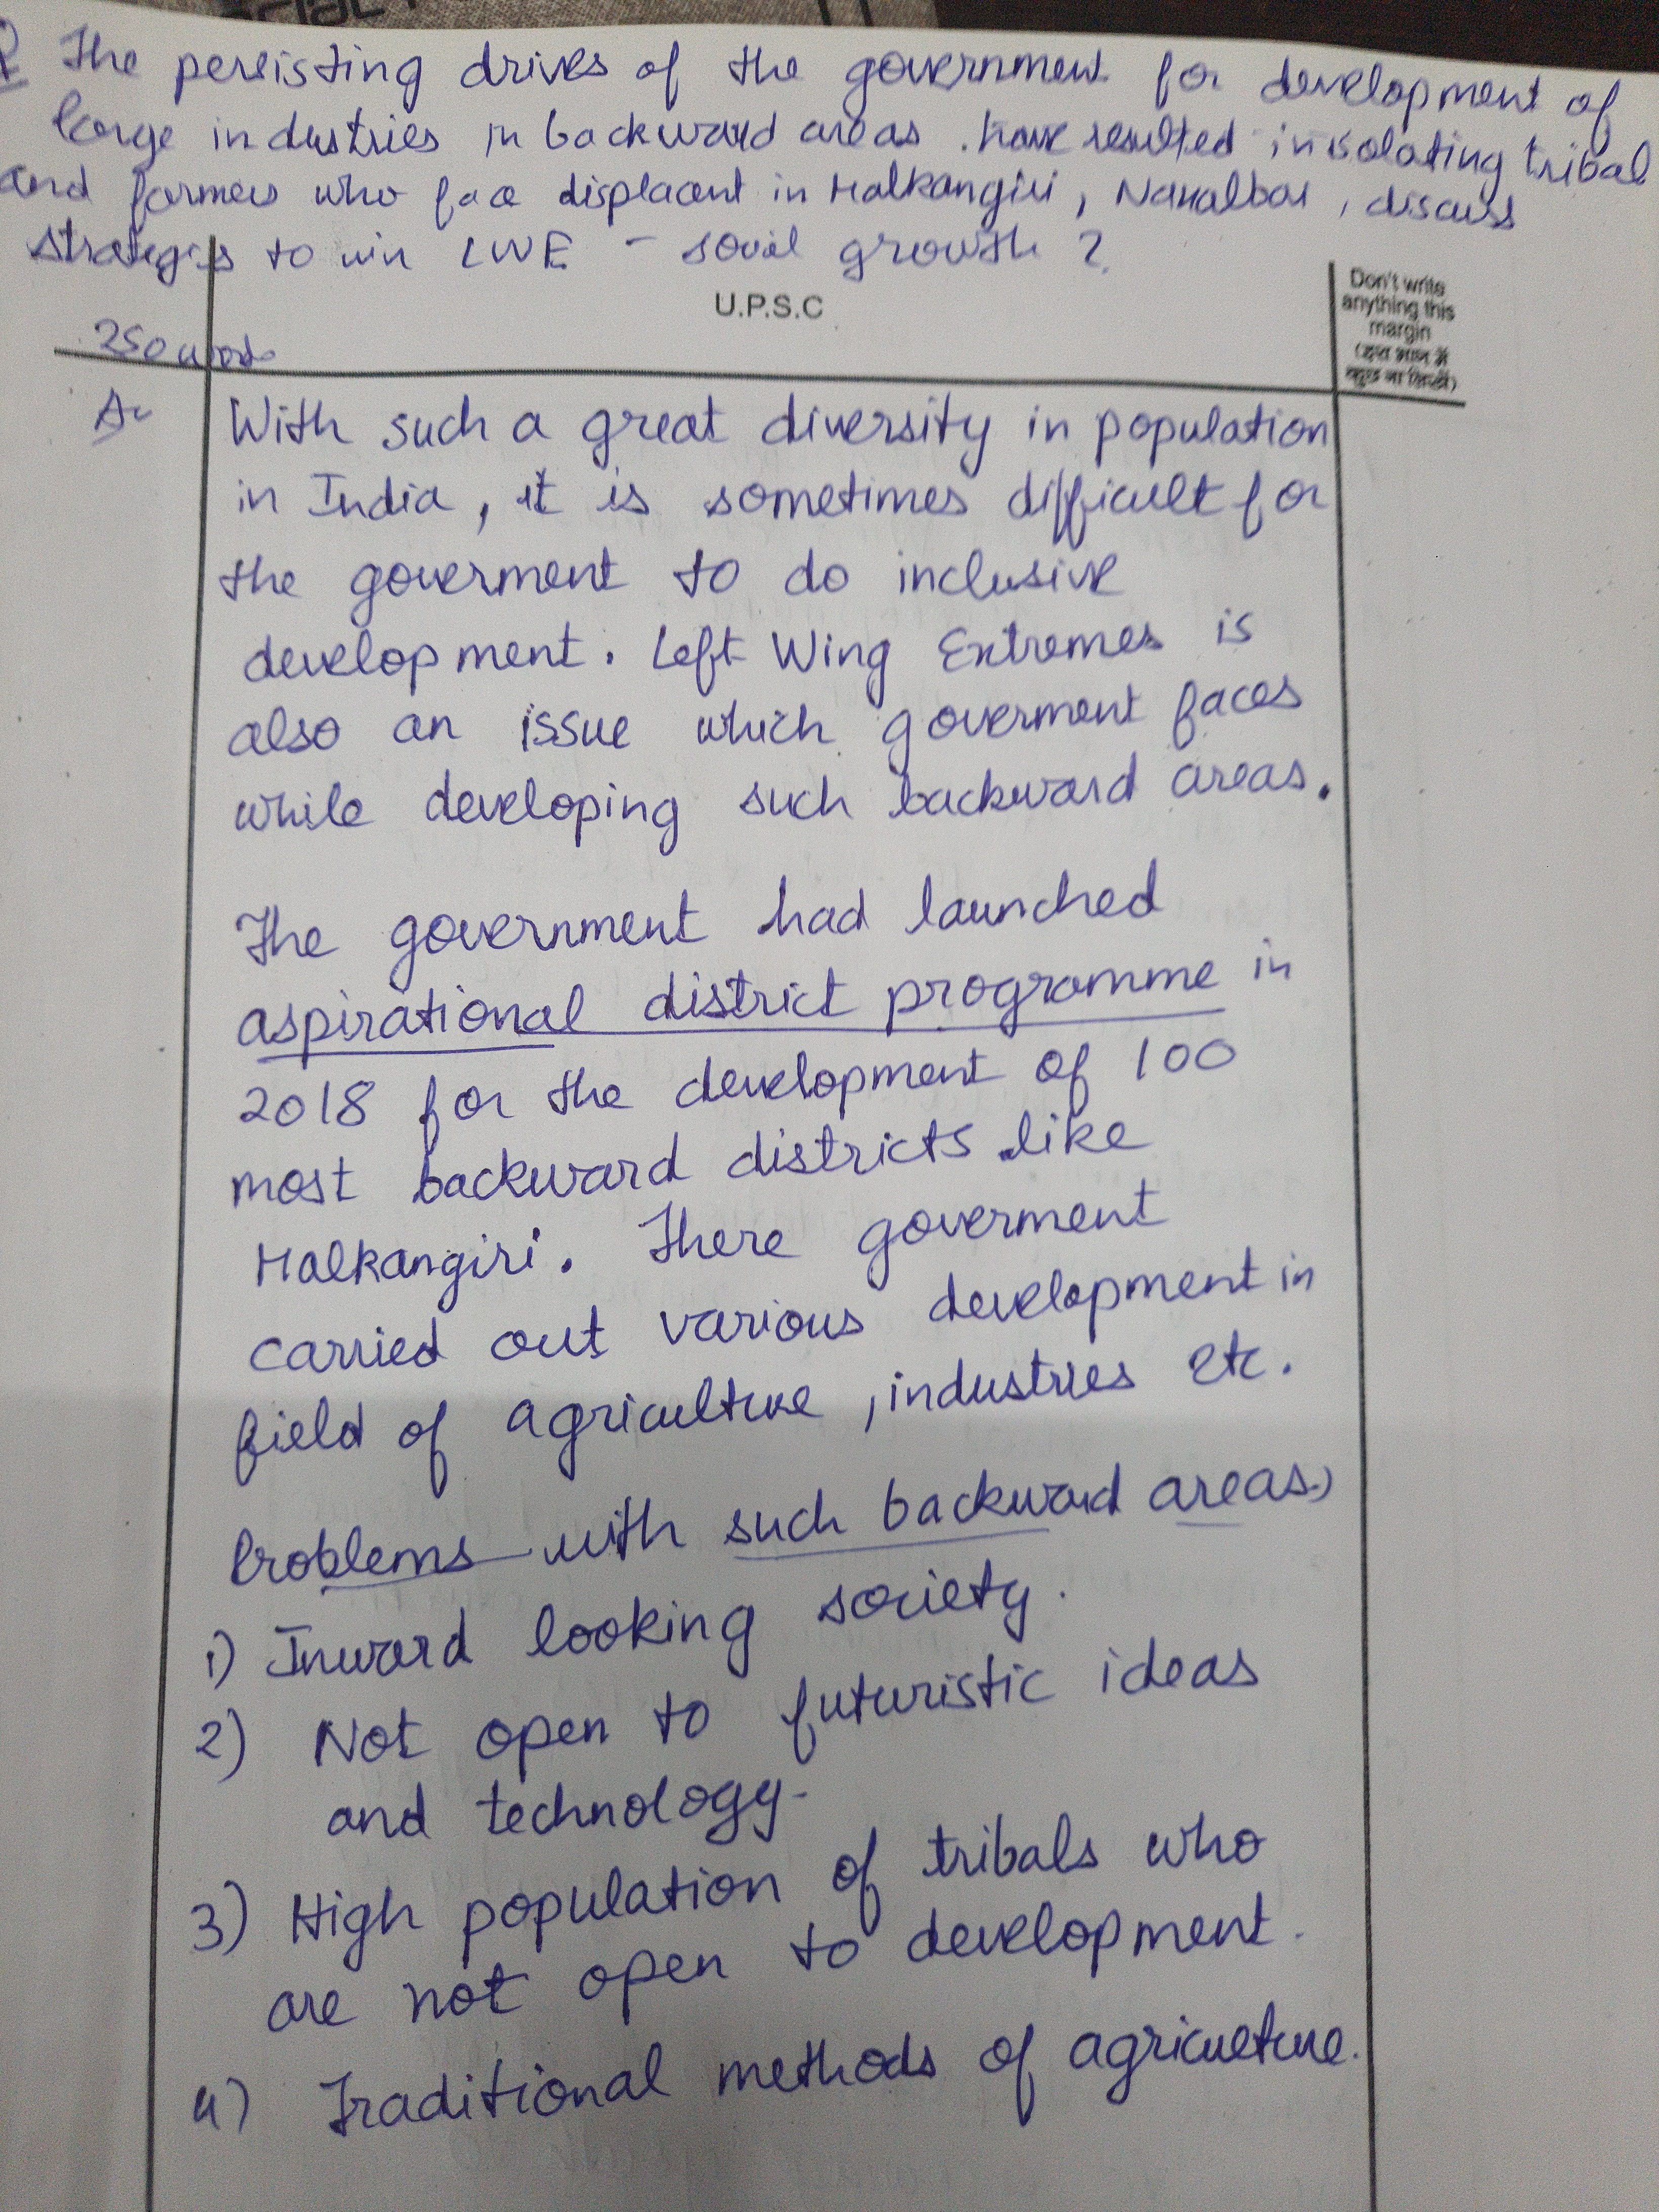 Q The persisting drives of the government for development of
large industries in backward areas . have resulted in isolating tribal
and farmers who face displacent in Malkangiri, Naxalbai, discuss
strategies to win LWE - social growth ?
U.P.S.C
Don't write
anything this
margin
250 words
A- With such a great diversity in population
in India, it is sometimes difficult for
the goverment to do inclusive
development. Left Wing Extremes is
also an issue which goverment faces
while developing such backward areas.
The government had launched
aspirational district programme in
2018 for the development of 100
most backward districts like
Malkangiri. There goverment
carried out various development in
field of agriculture, industries etc.
Problems with such backward areas:)
1) Inward looking society.
2) Not open to futuristic ideas
and technology-
3) High population of tribals who
are not open to development.
4) Traditional methods of agriculture.